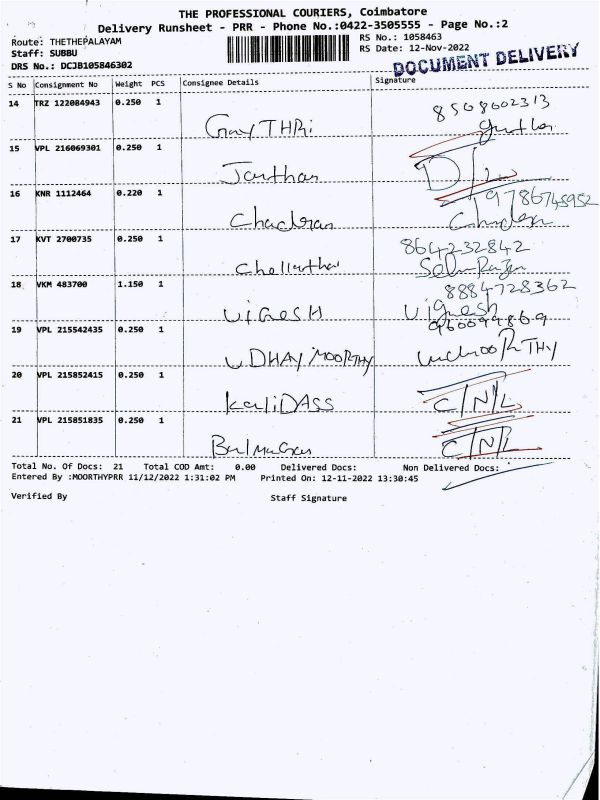 THE PROFESSIONAL COURIERS, Coimbatore
Delivery Runsheet - PRR - Phone No.:0422-3505555 - Page No.:2
Route: THETHEPALAYAM
RS No.: 1058463
Staff: SUBBU
RS Date: 12-Nov-2022
DRS No.: DCJB105846302
DOCUMENT DELIVERY
S No Consignment No Weight PCS Consignee Details Signature
14 TRZ 122084943 0.250 1
8508602313
GayTHRi
15 VPL 216069301 0.250 1
Janthan
D/L
16 KNR 1112464 0.220 1
9786745952
Chadran
17 KVT 2700735 0.250 1
8642232842
Chellathai
18 VKM 483700 1.150 1
8884728362
ViGnesH
Vignesh
19 VPL 215542435 0.250 1
UDHAYMOORTHY
20 VPL 215852415 0.250 1
KaliDASS
C/N/L
21 VPL 215851835 0.250 1
C/N/L
Total No. Of Docs: 21 Total COD Amt: 0.00 Delivered Docs: Non Delivered Docs:
Entered By :MOORTHYPRR 11/12/2022 1:31:02 PM Printed On: 12-11-2022 13:30:45
Verified By Staff Signature